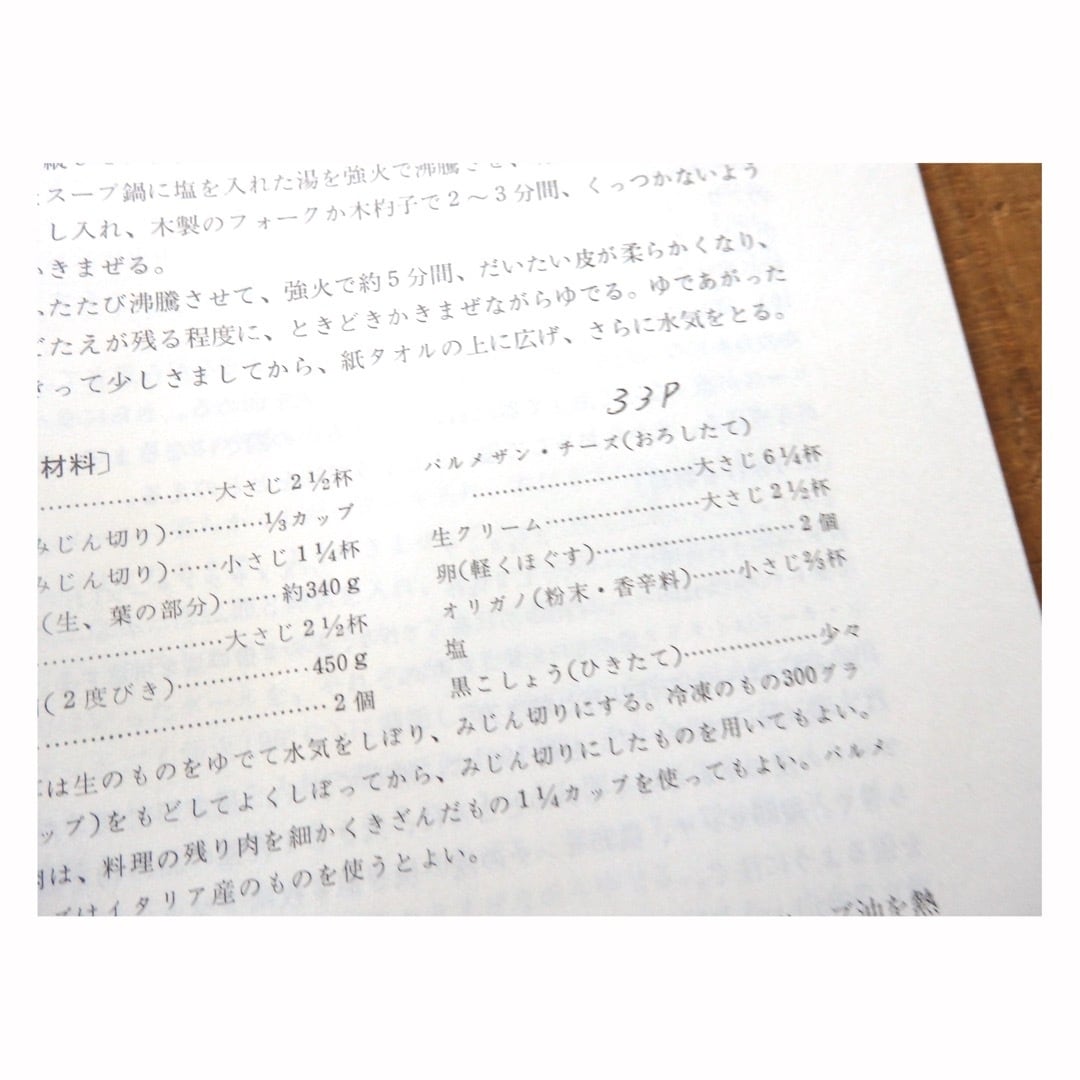 スープ鍋に塩を入れた湯を強火で沸騰させ、
し入れ、木製のフォークか木杓子で2〜3分間、くっつかないよう
きまぜる。
たたび沸騰させて、強火で約5分間、だいたい皮が柔らかくなり、
たえが残る程度に、ときどきかきまぜながらゆでる。ゆであがった
って少しさましてから、紙タオルの上に広げ、さらに水気をとる。
33P
材料]
……………………大さじ2½杯
みじん切り)…………⅓カップ
みじん切り)……小さじ1¼杯
(生、葉の部分)……約340g
……………………大さじ2½杯
(2度びき)……………450g
……………………………2個
パルメザン・チーズ(おろしたて)
……………………大さじ6¼杯
生クリーム………………大さじ2½杯
卵(軽くほぐす)……………………2個
オリガノ(粉末・香辛料)……小さじ⅔杯
塩
黒こしょう(ひきたて)……………少々
は生のものをゆでて水気をしぼり、みじん切りにする。冷凍のもの300グラ
ップ)をもどしてよくしぼってから、みじん切りにしたものを用いてもよい。
は、料理の残り肉を細かくきざんだもの1¼カップを使ってもよい。パルメ
はイタリア産のものを使うとよい。
油を熱